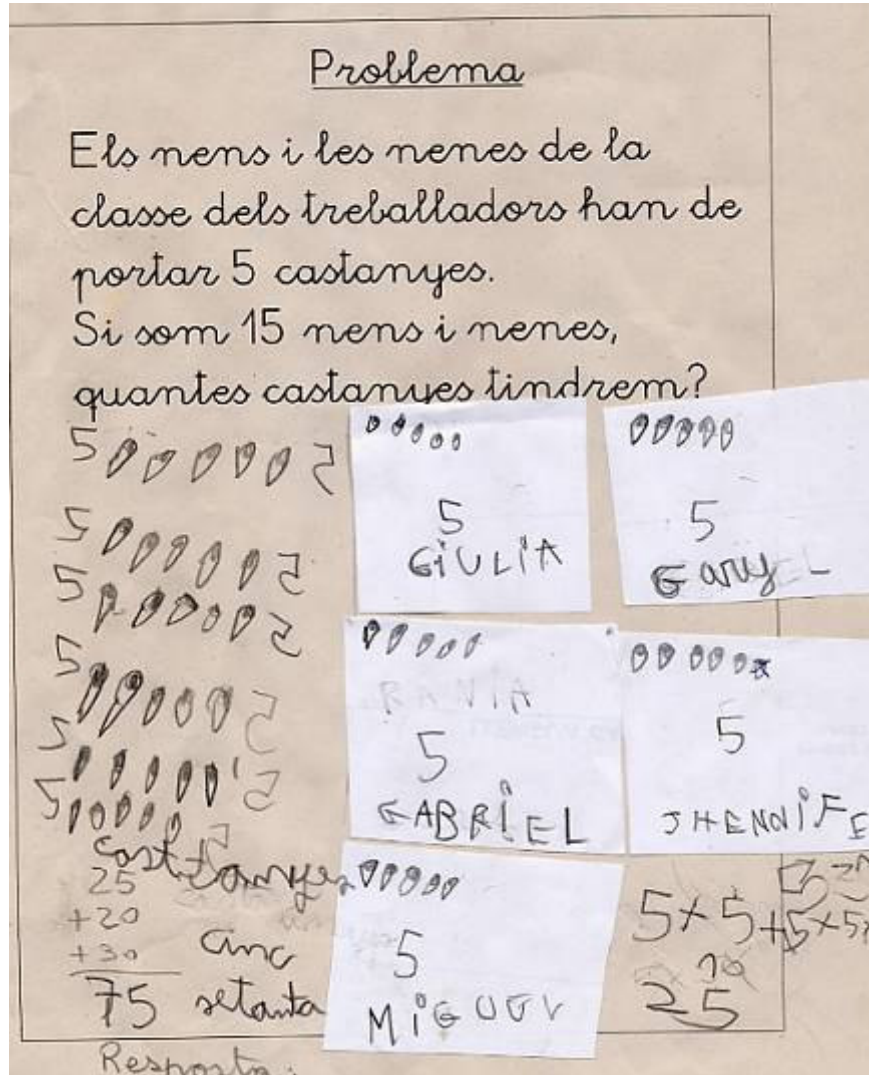 Problema
Els nens i les nenes de la
classe dels treballadors han de
portar 5 castanyes.
Si som 15 nens i nenes,
quantes castanyes tindrem?
5 5
5 5
5 5
5 5
5 5
5 5
5
GIULIA
5
Gary
5
GABRIEL
5
JHENNIFE
5
MIGUEL
castanyes
25
+20
+30 cinc
75 setanta
5+5+5+5
25
Resposta: